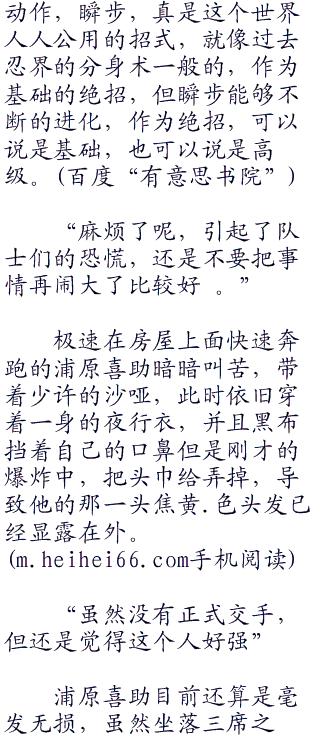 动作，瞬步，真是这个世界
人人公用的招式，就像过去
忍界的分身术一般的，作为
基础的绝招，但瞬步能够不
断的进化，作为绝招，可以
说是基础，也可以说是高
级。(百度“有意思书院”)
“麻烦了呢，引起了队
士们的恐慌，还是不要把事
情再闹大了比较好 。”
极速在房屋上面快速奔
跑的浦原喜助暗暗叫苦，带
着少许的沙哑，此时依旧穿
着一身的夜行衣，并且黑布
挡着自己的口鼻但是刚才的
爆炸中，把头巾给弄掉，导
致他的那一头焦黄.色头发已
经显露在外。
(m.heihei66.com手机阅读)
“虽然没有正式交手，
但还是觉得这个人好强”
浦原喜助目前还算是毫
发无损，虽然坐落三席之